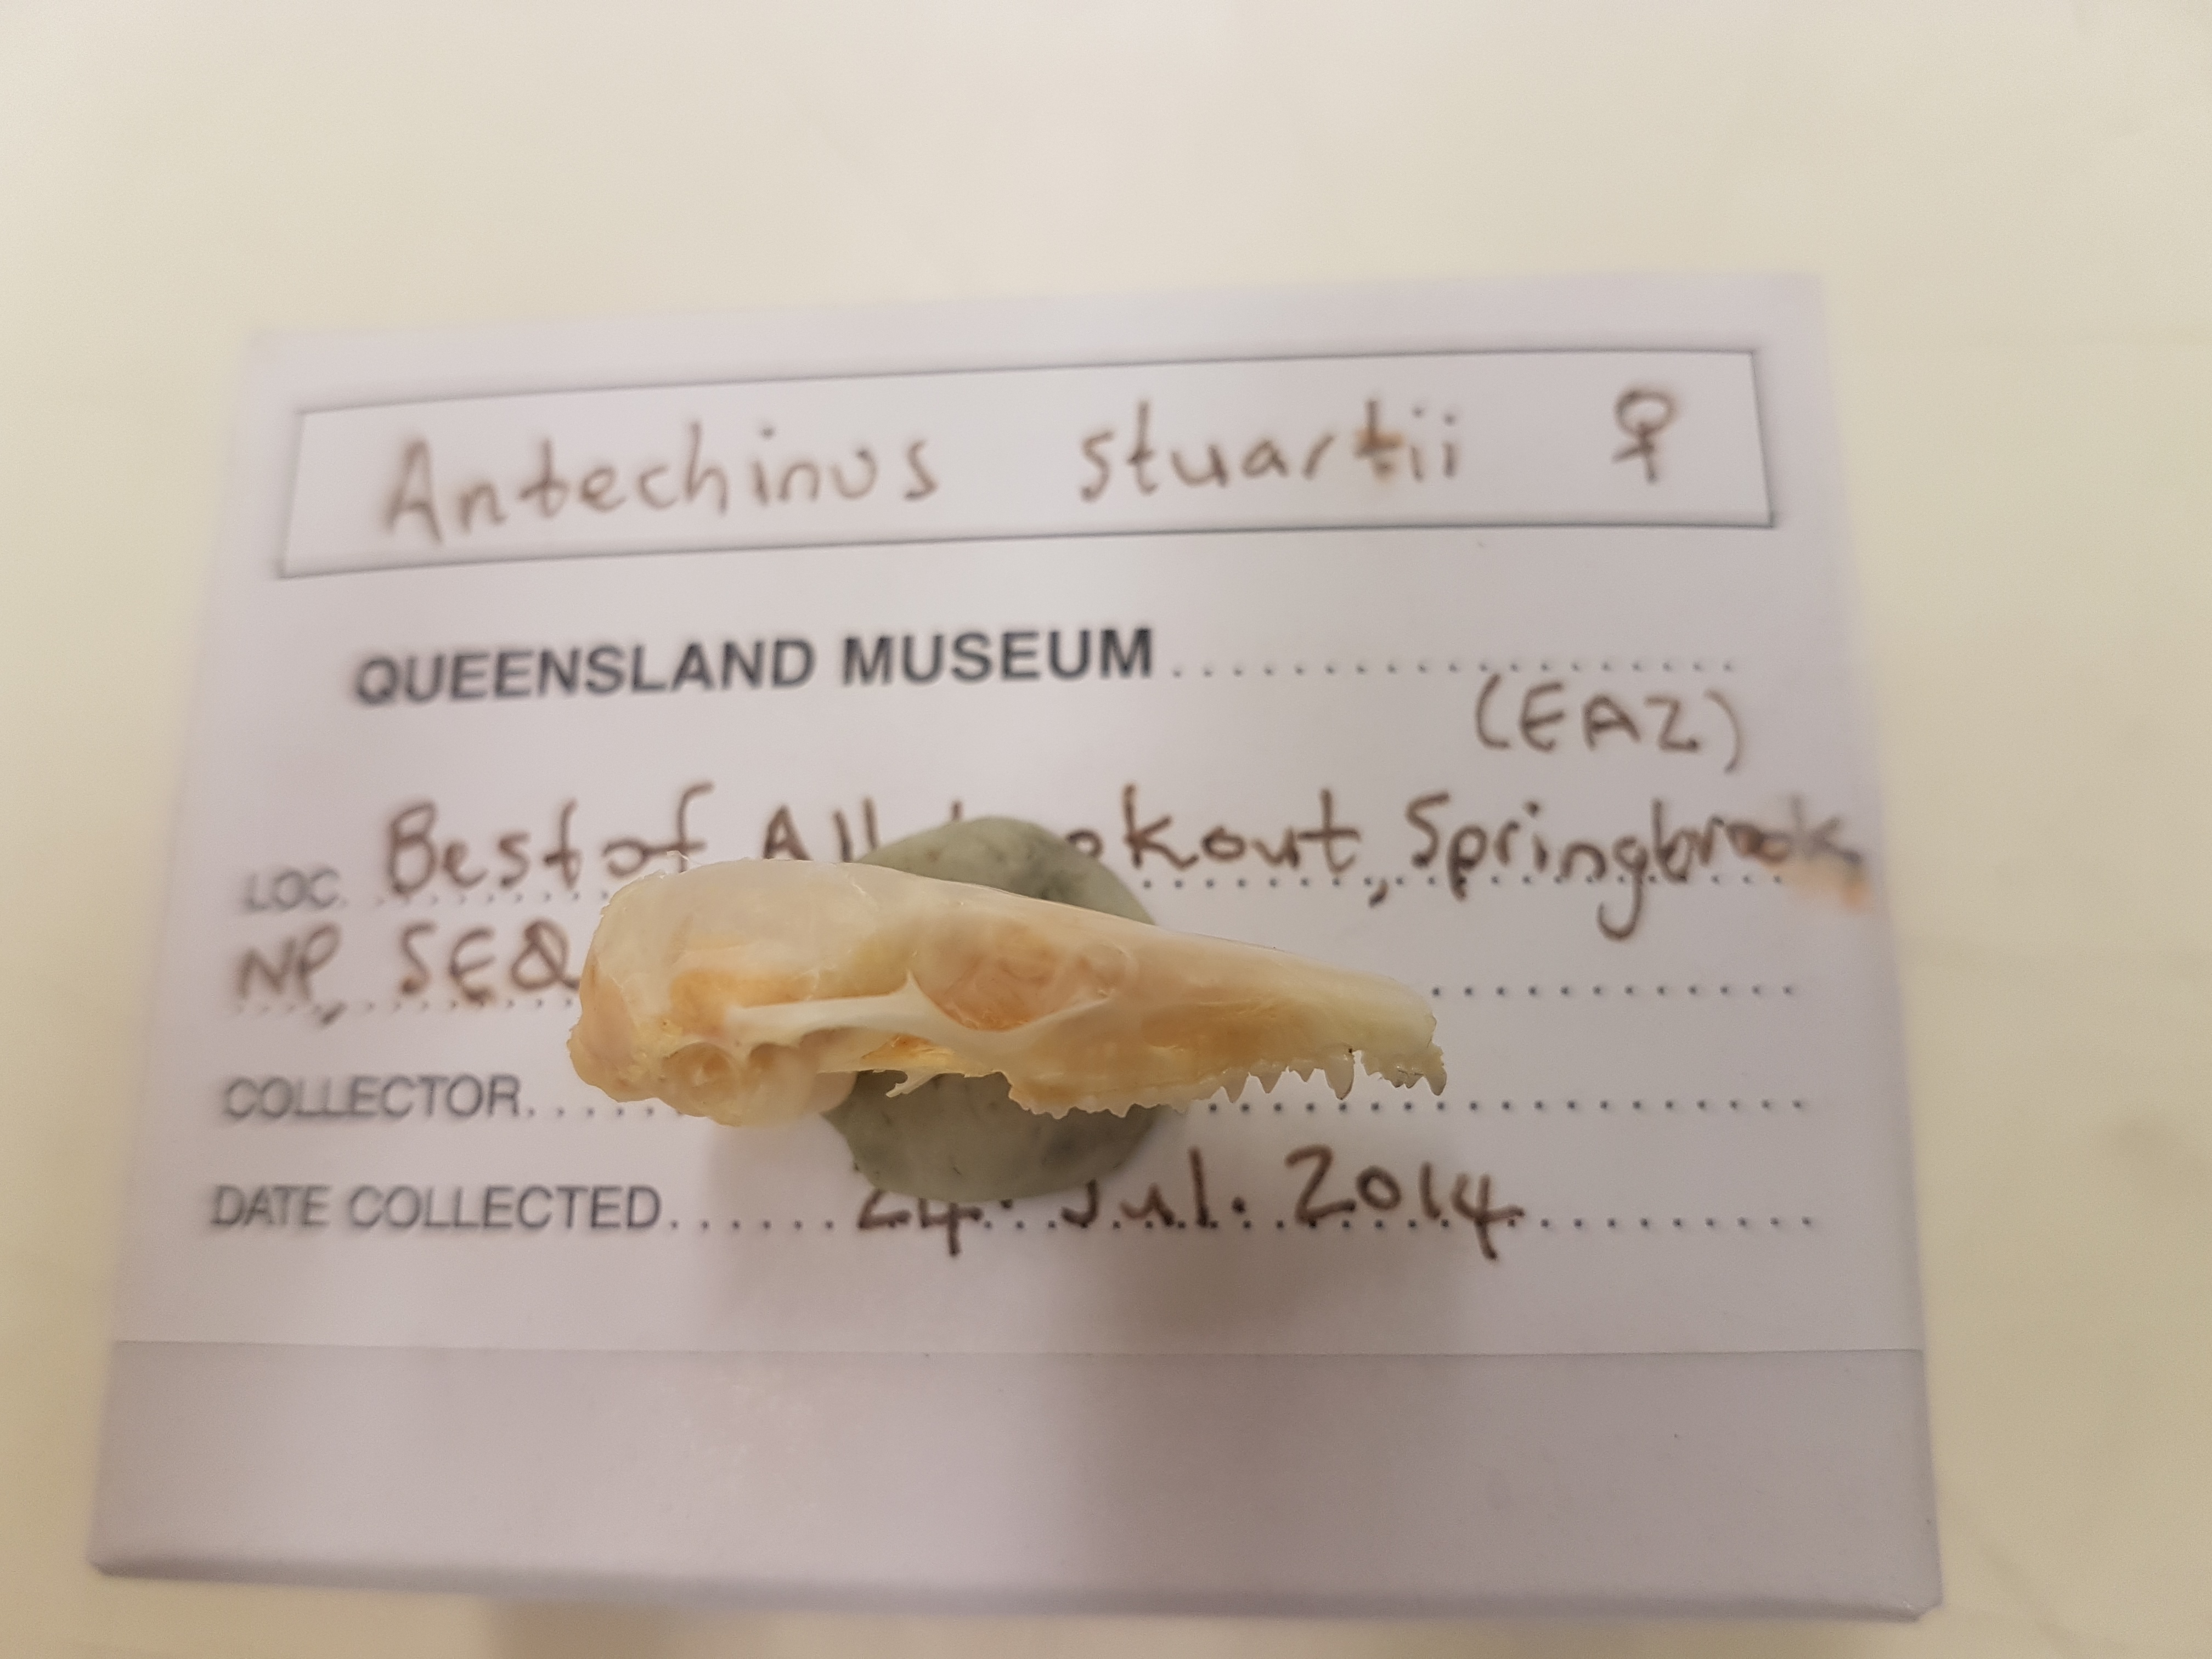 Antechinus stuartii ♀
QUEENSLAND MUSEUM
(EA2)
LOC. Best of All Lookout, Springbrook
NP, SEQ
COLLECTOR
DATE COLLECTED 24. Jul. 2014